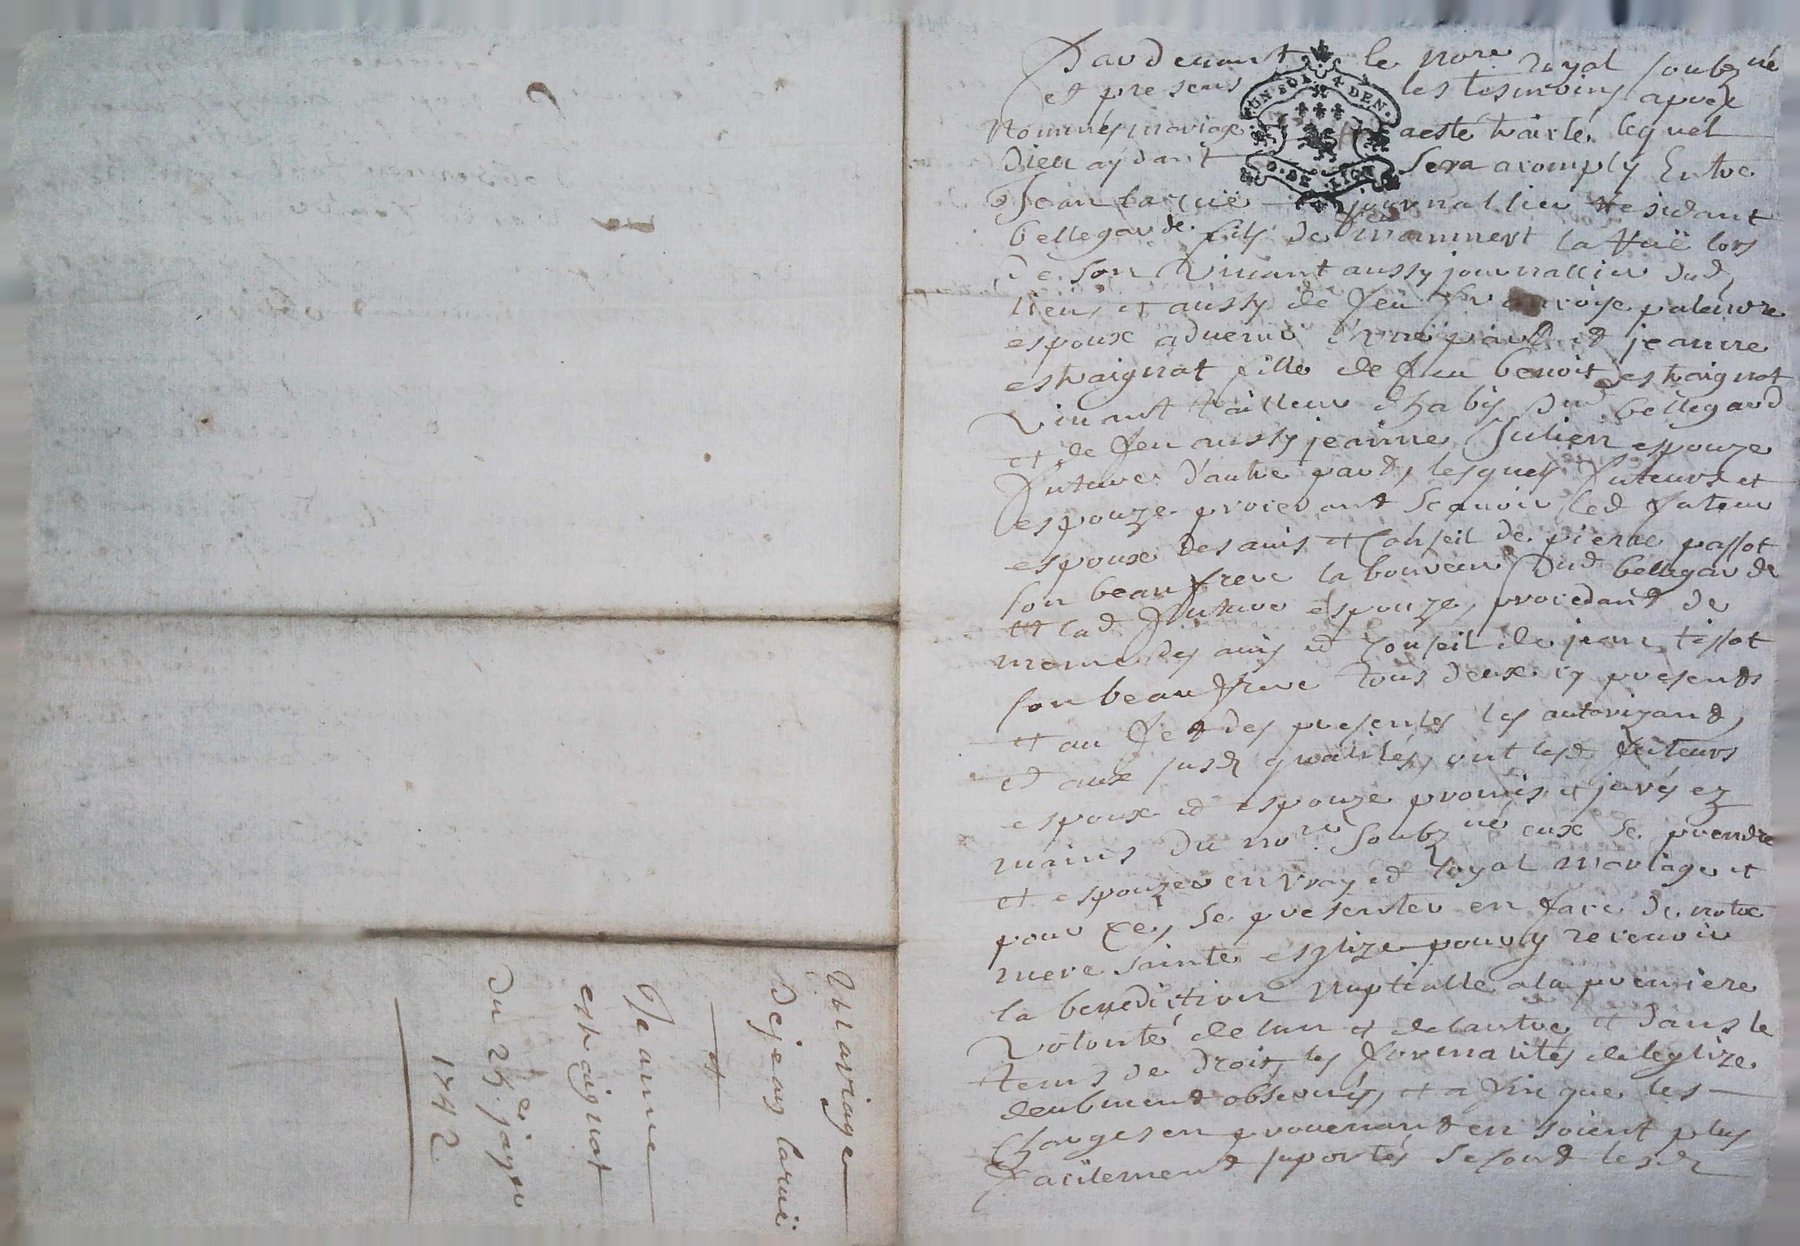 Pardevant le no.re royal soubz.né
et presens les tesmoins apres
nommés mariage a esté traicté lequel
dieu aydant sera acomply Entre
Jean larüë journallier residant
bellegarde fils de mammert la Ruë lors
de son vivant aussy journallier dud.
lieu, et aussy de feu françoise
espoux advenir d'une part et jeanne
estraignat fille de feu benoit estraignat
vivant tailleur d'habis dud. bellegard
et de feu aussy jeanne Julien espouze
future d'autre part, lesquels futeurs et
espouze procedant scavoir led futeur
espoux des avis et Conseil de pierre passot
son beau frere laboureur dud bellegarde
et lad future espouze, procedant de
meme des avis et Conseil de jean tissot
son beau frere tous deux icy presents
et au fet des presentes les autorizant,
et aux susd. qualités, ont lesd futeurs
espoux et espouze promis et jurés ez
mains du no.re soubz.né eux se prendre
et espouzer en vray et loyal mariage et
pour ce, se presenter en face de notre
mere sainte eglize pour y recevoir
la benediction nuptialle a la premiere
volonté de lun et de lautre et dans le
tems de droit, les formalités de leglize
deubment observés, et a fin que les
charges en provenant en soient plus
facilement suportés se sont lesd
UN SOL 4 DEN.
G. DE LION
Mariage
De jean larüë
et
Jeanne
estraignat
du 25.e janvr
1742